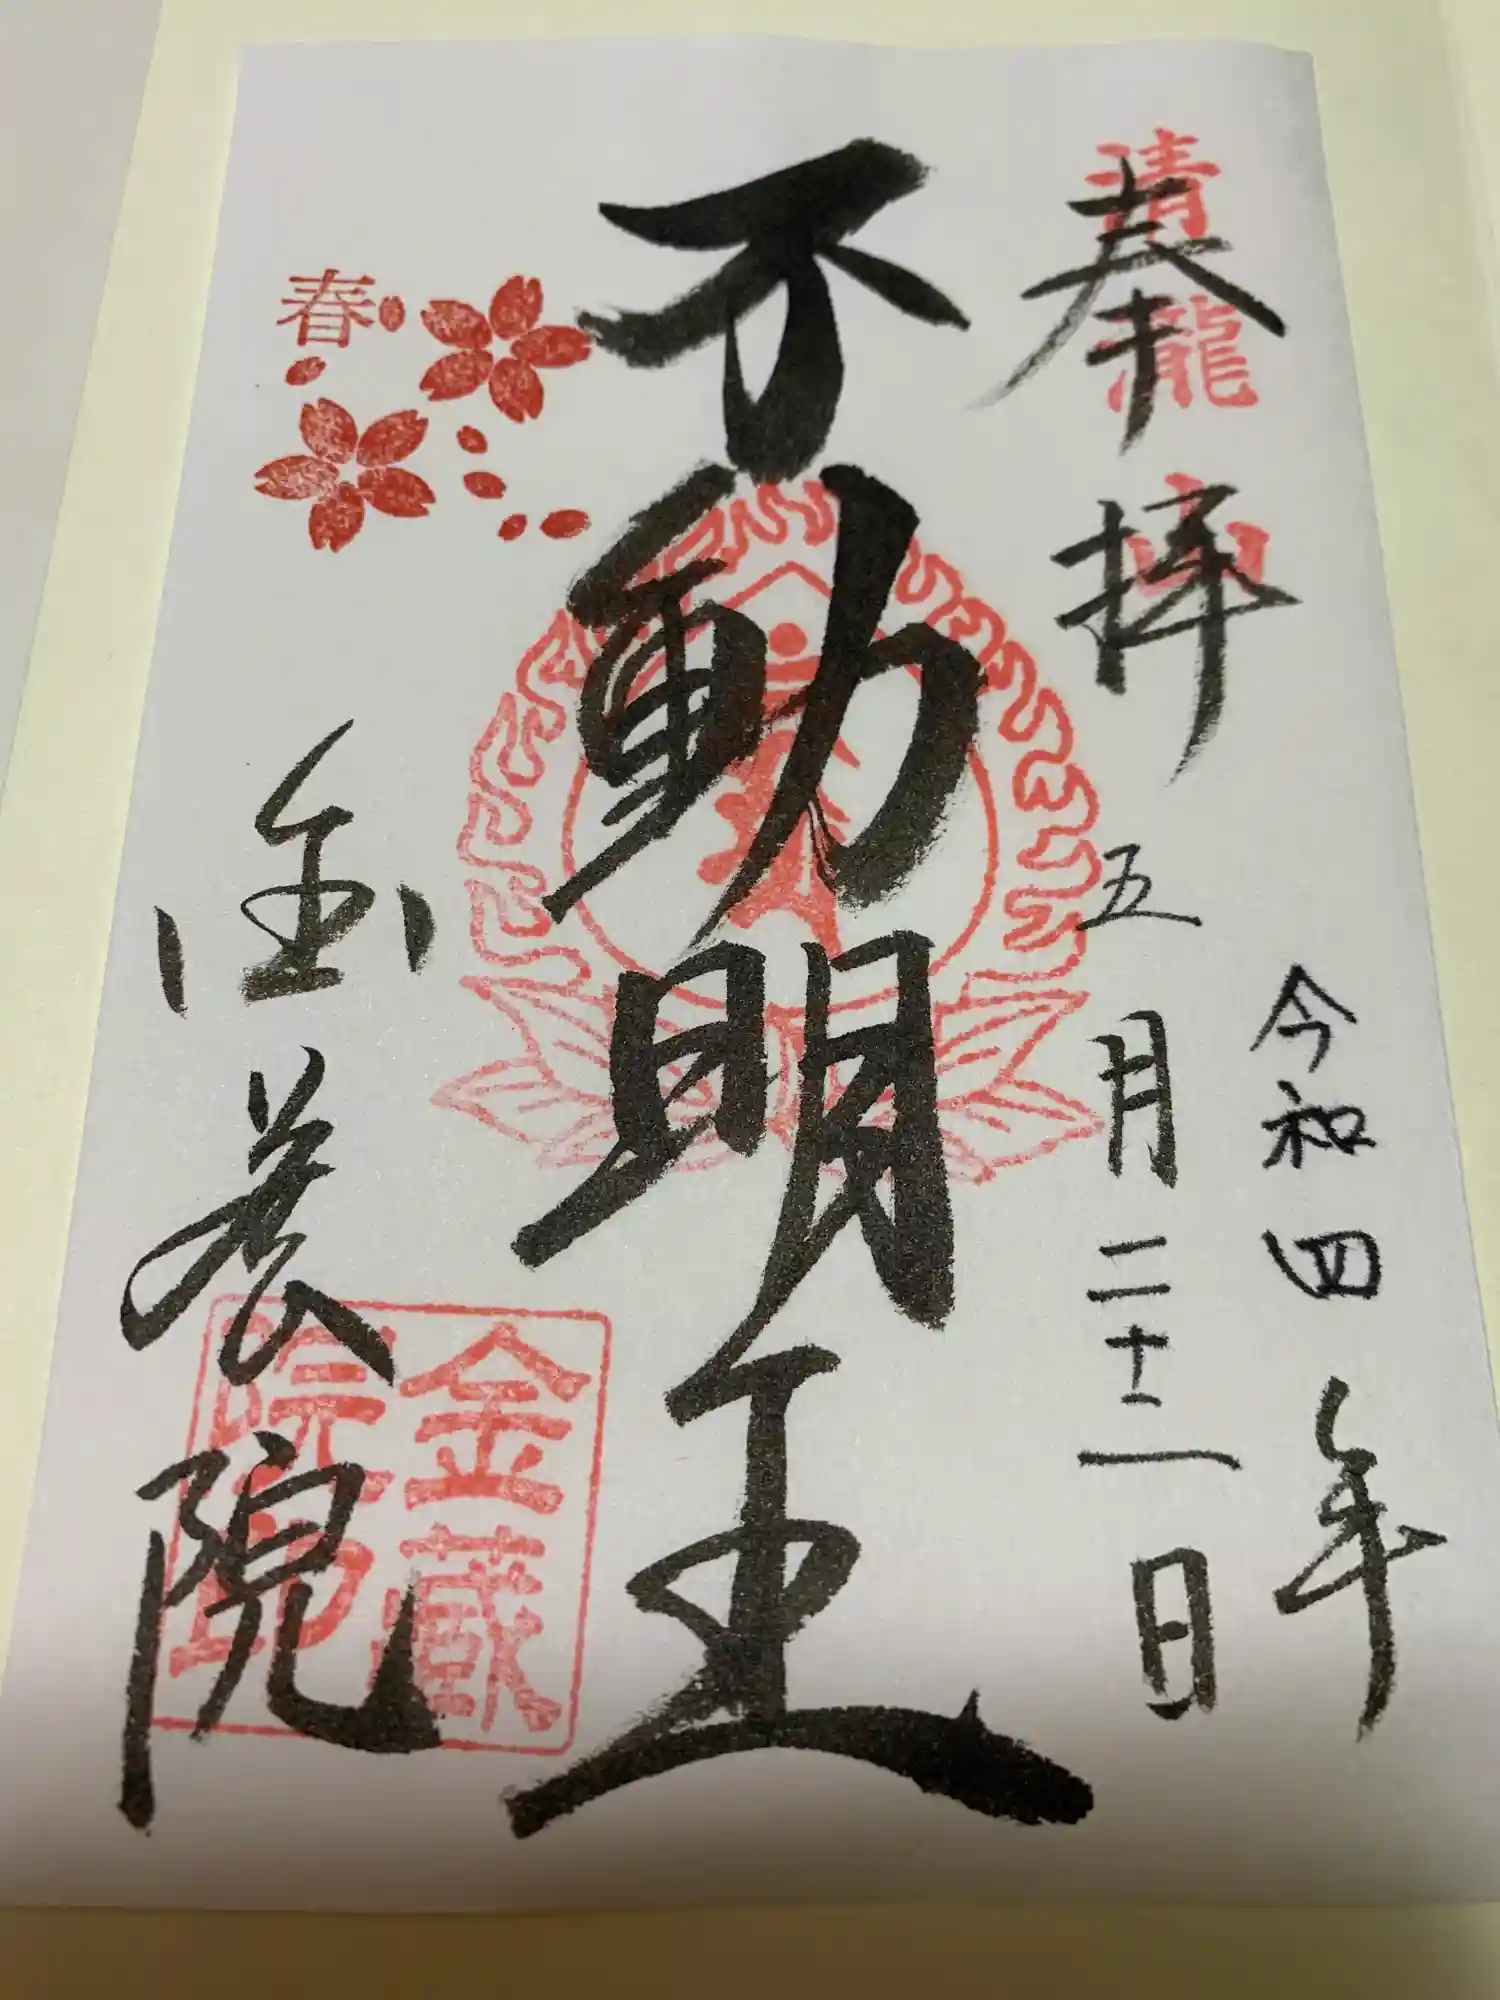 令和四年
奉拝 五月二十二日
清瀧山
不動明王
春
金蔵院
金蔵
院印